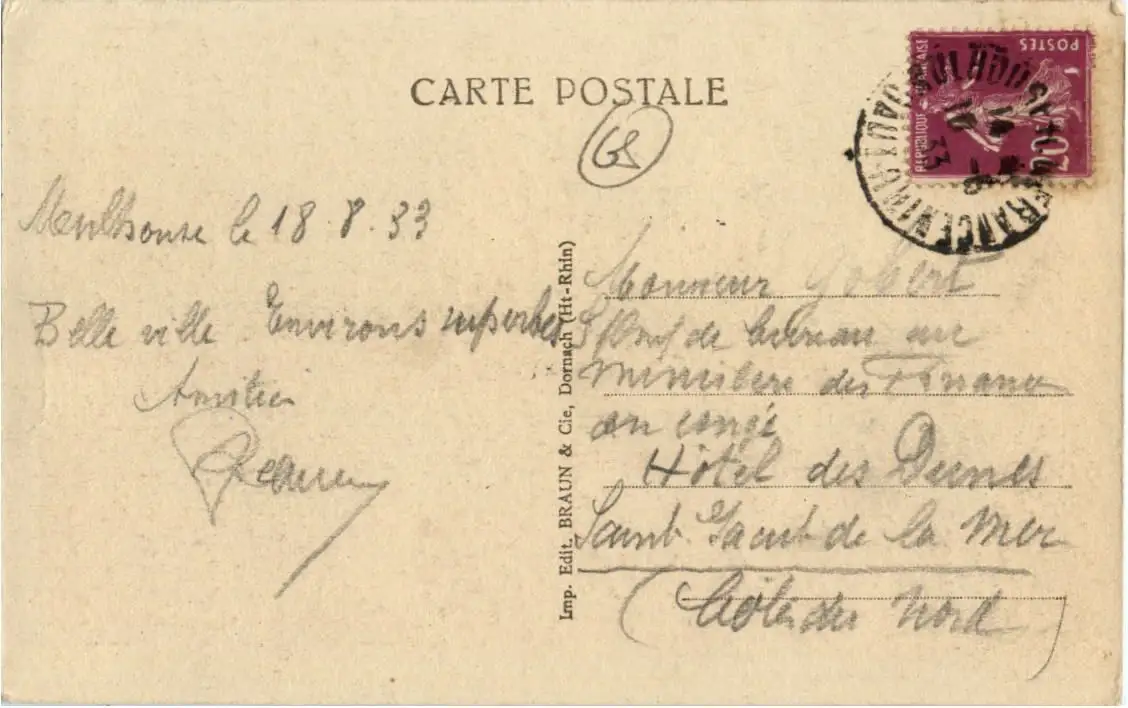 CARTE POSTALE
68
POSTES
REPUBLIQUE FRANÇAISE
20
Mulhouse le 18.8.33
Belle ville Environs superbes
Amitiés
Imp. Edit. BRAUN & Cie, Dornach (Ht-Rhin)
Monsieur Gobert
S/Chef de bureau au
Ministère des Finances
en congé
Hôtel des Dunes
Saint Jacut de la Mer
(Côtes du Nord)